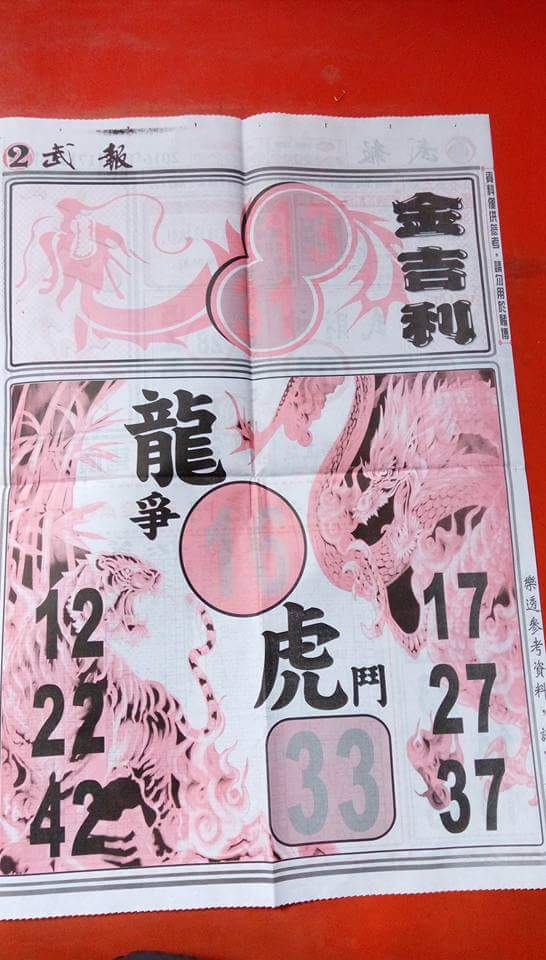 2 武報
金吉利
資料僅供參考，請勿用於賭博
龍爭
16
虎鬥
33
12
22
42
17
27
37
樂透參考資料，